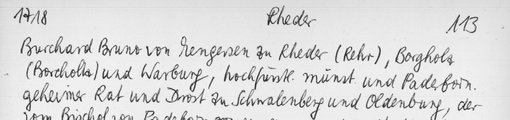 1718 Rheder 113
Burchard Bruno von Mengersen zu Rheder (Rehr), Borgholz
(Borcholtz) und Warburg, hochfürstl. münst. und Paderborn.
geheimer Rat und Drost zu Schwalenberg und Oldenburg, der
vom Bischof von Paderborn